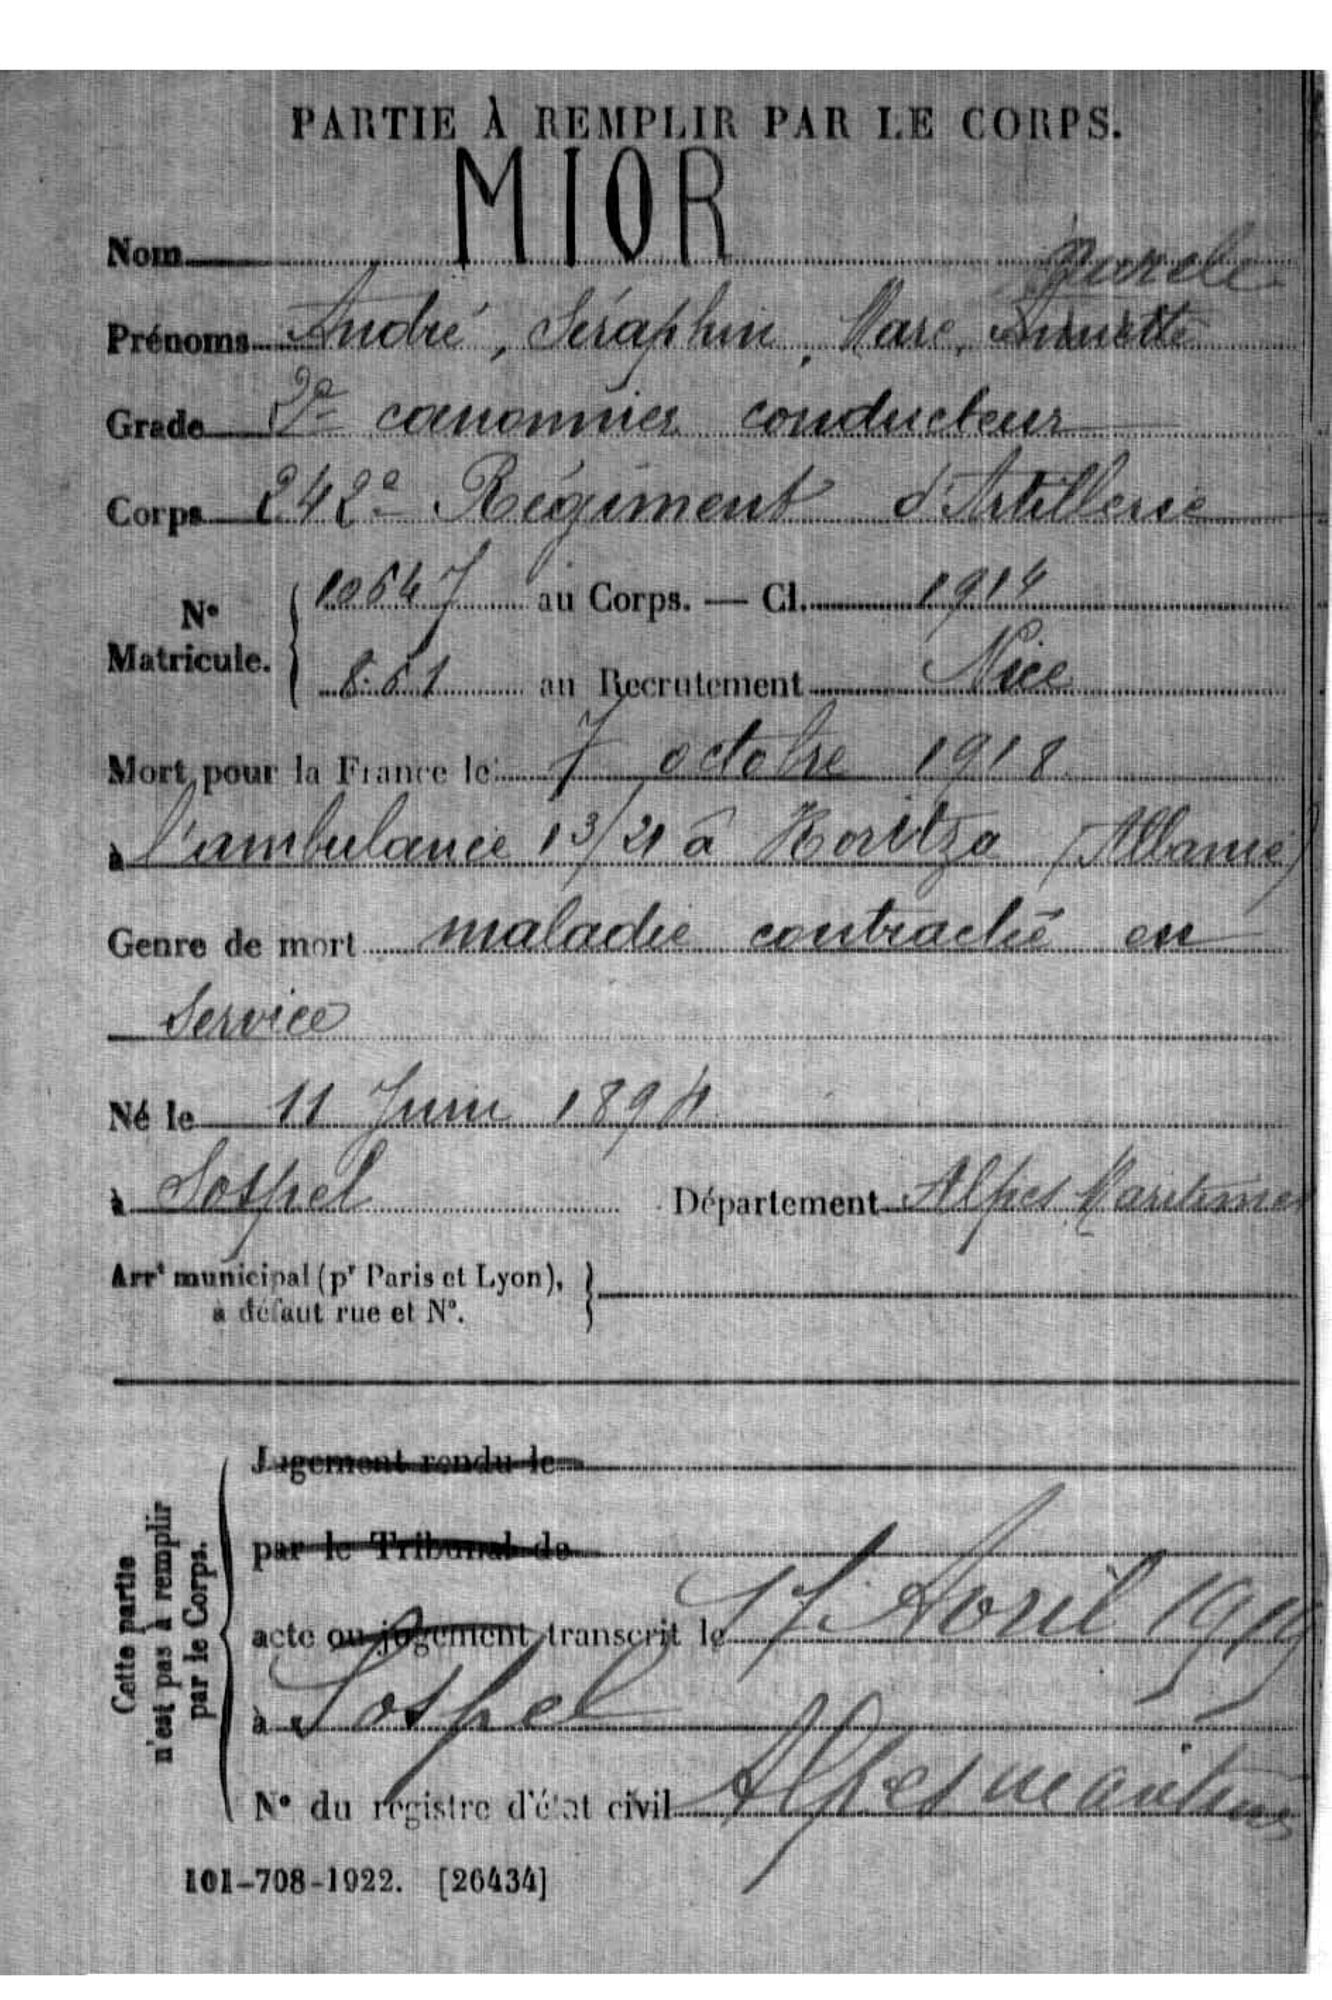 PARTIE À REMPLIR PAR LE CORPS.
Nom MIOR
Prénoms André, Séraphin, Marc,
Grade 2e canonnier conducteur
Corps 242e Régiment d'Artillerie
N° Matricule. 10647 au Corps. — Cl. 1914
861 au Recrutement Nice
Mort pour la France le 7 octobre 1918
à l'ambulance 13/21 à Koritza (Albanie)
Genre de mort maladie contractée en
Service
Né le 11 Juin 1894
à Sospel Département Alpes Maritimes
Arrt municipal (pr Paris et Lyon),
à défaut rue et N°.
Cette partie
n'est pas à remplir
par le Corps.
Jugement rendu le
par le Tribunal de
acte ou jugement transcrit le 17 Avril 1919
à Sospel
N° du registre d'état civil Alpes maritimes
101-708-1922. [26434]